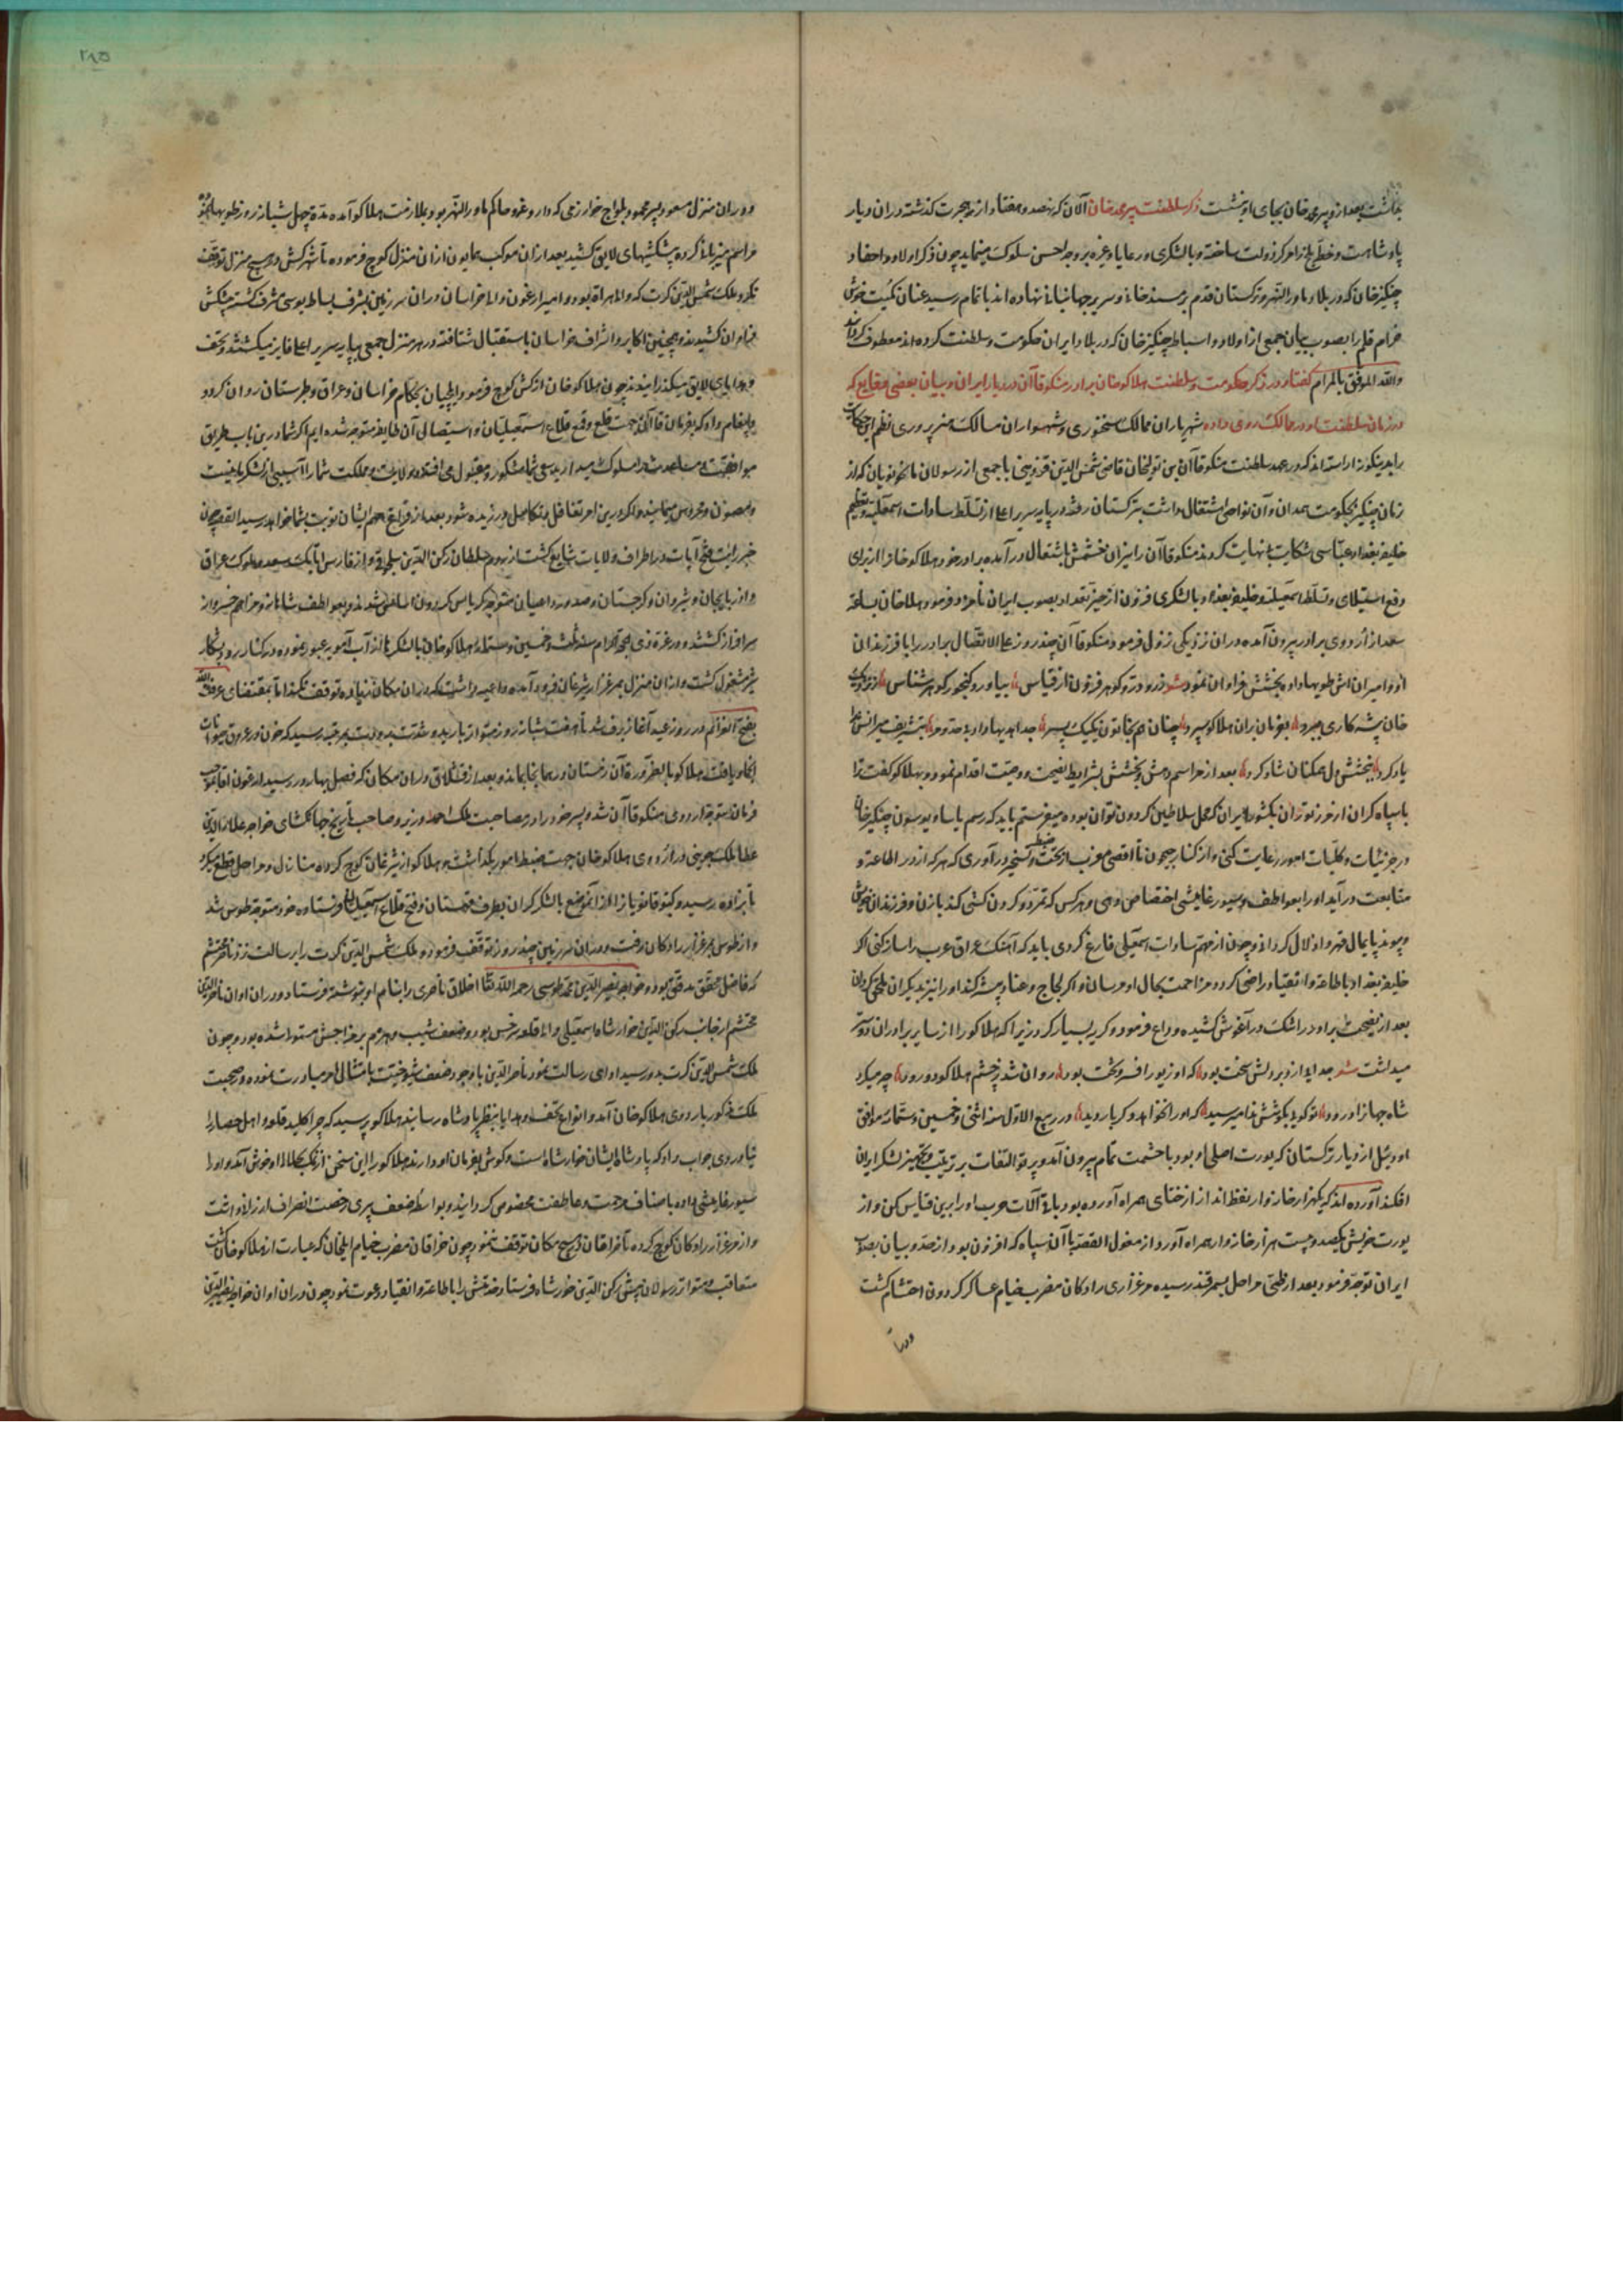 بعد ازو پیر محمد خان بجای او بنشست ذکر سلطنت پیر محمد خان الآن که نهصد و هفتاد از هجرت کذشته در ان دیار
پادشاهست و خطه بلخ را مرکز دولت ساخته و با لشکری و رعایا وغیره بر وجه احسن سلوک مینماید چون ذکر اولاد و احفاد
چنکیز خان که در بلاد ماورالنهر و ترکستان قدم بر مسند خانی و سریر جهانبانی نهاده اند باتمام رسید عنان کمیت خوش
خرام قلم را بصوب بیان جمعی از اولاد و اسباط چنکیز خان که در بلاد ایران حکومت و سلطنت کرده اند معطوف
والله الموفق بالمرام کفتار در ذکر حکومت و سلطنت هلاکو خان برادر منکوقاآن در دیار ایران و بیان بعضی وقایع که
در زمان سلطنت او در ممالک روی داده شهریاران ممالک سخنوری و شهسواران مسالک هنرپروری نظم این
برابر مینکونه اراسته اند که در عهد سلطنت منکوقاآن بن تولیخان قاضی شمس الدین قزوینی با جمعی از رسولان که از
زمان چنکیز بحکومت همدان و آن نواحی اشتغال داشت بترکستان رفته در پایه سریر اعلا از تسلط سادات اسمعیلیه
خلیفه بغداد عباسی شکایت بی نهایت کردند منکوقاآن را نیران خشمش باشتعال در آمده برادر خود هلاکو خانرا از برای
دفع استیلای و تسلط اسمعیلیه و خلیفه بغداد با لشکری افزون از حیز تعداد بصوب ایران نامزد فرمود و هلاخان
بعد از اردوی برادر بیرون آمده در ان نزدیکی نزول فرمود و منکوقاآن چند روز علی الاتصال برادر را با فرزندان
او و امیران اش طویها داده بخشش فراوان نمود شعر زر و زیور و کوهر فزون از قیاس بیاورد کنجور کوهرشناس
خان بشرکاری ببرد بفرمان بران هلاکو سپرد چنان هم بخاتون یکیک پسر جدا هدیها داد بی حد و مر بتشریف میرانش
یاد کرد ببخشش دل همکنان شاد کرد بعد از مراسم دهش و بخشش بشرایط نصیحت و وصیت اقدام نمود و بهلاکو کفت ترا
با سپاه کران از مرز توران بکشور ایران که محل سلاطین کردون توان بوده میفرستم باید که رسم یاسا و یوسون چنکیز خان
در جزئیات و کلیات امور رعایت کنی و از کنار جیحون تا اقصی مغرب در تحت ضبط و تسخیر در آوری که هرکه از در اطاعت و
متابعت در آید او را بعواطف و سیورغامیشی اختصاص دهی و هرکس که تمرد و کردن کشی کند با زن و فرزندان
و پیوند پایمال قهر و اذلال کردانی و چون از مهم سادات اسمعیلی فارغ کردی باید که آهنک عراق عرب را ساز کنی اکر
خلیفه بغداد باطاعت و انقیاد راضی کردد مزاحمت بحال او مرسان و اکر لجاج و عناد پیشه کند او را نیز بدیکران ملحق کردان
بعد از نصیحت برادر در اشک در آغوش کشیده وداع فرمود و کریه بسیار کرد زیرا که هلاکو را از سایر برادران دوستر
میداشت شعر جدایی ازو بر دلش سخت بود که او زیور افسر و تخت بود روان شد ز چشم هلاکو دو رود چه میکرد
شاه جهانرا درود تو کویی بکوشش ندا میرسید که او را نخواهد دکر بار دید در ربیع الاول سنه اثنی و خمسین و ستمائه موافق
اودئیل از دیار ترکستان که یورت اصلی او بود با حشمت تمام بیرون آمد و پرتو التفات بر ترتیب و تجهیز لشکر ایران
افکند آورده اند که یکهزار خانه وار نفط انداز از ختای همراه آورده بود باقی آلات حرب او را برین قیاس کن و از
یورت خویش یکصد و بیست هزار خانه وار همراه آورد از مغول القصه با آن سپاه که افزون بود از حد و بیان بصوب
ایران توجه فرمود بعد از طی مراحل بسمرقند رسیده مرغزاری رادکان مضرب خیام عساکر کردون احتشام کشت
در ان
۲۸۵
و در ان منزل مسعود پسر محمود یلواج خوارزمی که داروغه و حاکم ماورالنهر بود بملازمت هلاکو آمده مدة چهل شبانه روز طویها
مراسم میزبانی کرده پیشکشهای لایق کشید بعد از ان موکب همایون از ان منزل کوچ فرموده تا شهر کش در هیچ منزل توقف
نکرد و ملک شمس الدین کرت که والی هراة بود و امیر ارغون والی خراسان در ان سرزمین بشرف بساط بوسی مشرف کشته پیشکش
فراوان کشیدند و همچنین اکابر و اشراف خراسان باستقبال شتافته در هر منزل جمعی بپایه سریر اعلا فایز میکشتند و تحف
و هدایای لایق میکذرانیدند چون هلاکو خان از کش کوچ فرمود ایلچیان بحکام خراسان و عراق و طبرستان روان کرد و
پیغام داد که بفرمان قاآنی جهت قلع و قمع قلاع اسمعیلیان و استیصال آن طایفه متوجه شده ایم اکر شما درین باب طریق
موافقت و مساعدت سلوک میدارید سعی شما مشکور و مقبول می افتد و ولایت و مملکت شما را آسیبی از لشکر ما نیست
و مصون و محروس میمانید و اکر درین امر تغافل و تکاسل ورزیده شود بعد از فراغ مهم ایشان نوبت بشما خواهد رسید القصه چون
خبر رایت فتح آیات در اطراف ولایات شایع کشت از روم سلطان رکن الدین سلجوقی و از فارس اتابک سعد و ملوک عراق
و اذربایجان و شروان و کرجستان و صدور و اعیان متوجه کریاس کردون اساس شدند و بعواطف شاهانه و مراحم خسروانه
سرافراز کشتند و در غره ذی الحجة الحرام سنه ثلث و خمسین و ستمائه هلاکو خان با لشکر از آب آمویه عبور نموده در کنار رود بشکار
شیر مشغول کشت و از ان منزل بمرغزار شبرغان فرود آمده داعیه داشت که در ان مکان زیاده توقف نکند اما بمقتضای عرفت الله
بفسخ العزائم در روز عید آغاز برف شد تا هفت شبانه روز متواتر بارید و شدت برودت بمرتبه رسید که خون در عروق حیوانات
انجماد یافت هلاکو بالضرورة آن زمستان در همانجا بماند و بعد از قشلاق در ان مکان که فصل بهار در رسید ارغون آقا بموجب
فرمان متوجه اردوی منکوقاآن شد و پسر خود را در مصاحبت ملک احمد وزیر و صاحب تاریخ جهانکشای خواجه علاءالدین
عطا ملک جوینی در اردوی هلاکو خان جهت ضبط امور بکذاشت و هلاکو از شبرغان کوچ کرده منازل و مراحل قطع
تا بزاوه رسید و کیتوقا نویان را از آن موضع با لشکر کران بطرف قهستان و فتح قلاع اسمعیلیان فرستاده خود متوجه طوس شد
و از طوس بمرغزار رادکان رفت و در ان سرزمین چند روز توقف فرموده ملک شمس الدین کرت را برسالت نزد ناصر محتشم
که فاضل محقق مدقق بود و خواجه نصیرالدین محمد طوسی رحمه الله اخلاق ناصری را بنام او نوشته فرستاد و در ان اوان ناصرالدین
محتشم از جانب رکن الدین خوارشاه اسمعیلی والی قلعه سرخس بود و ضعف شیب و هرم بر مزاجش مستولی شده بود و چون
ملک شمس الدین کرت بدو رسید ادای رسالت نمود ناصرالدین با وجود ضعف شیخوخیت بامتثال امر مبادرت نموده در صحبت
ملک مذکور باردوی هلاکو خان آمد و انواع تحف و هدایا بنظر پادشاه رسانید هلاکو پرسید که چرا کلید قلعه و اهل حصار را
نیاوردی جواب داد که پادشاه ایشان خوارشاه است و کوش بفرمان او دارند هلاکو را این سخن خوش آمد و او را
سیورغامیشی داده باصناف مرحمت و عاطفت مخصوص کردانید و بواسطه ضعف پیری رخصت انصراف ارزانی داشت
و از مرغزار رادکان کوچ کرده تا خراقان در هیچ مکان توقف ننمود چون خراقان مضرب خیام ایلخان که عبارت از هلاکو خان کشت
متعاقب و متواتر رسولان پیش رکن الدین خورشاه فرستاد و خدمتش را باطاعت و انقیاد دعوت نمود چون در ان اوان خواجه نصیرالدین